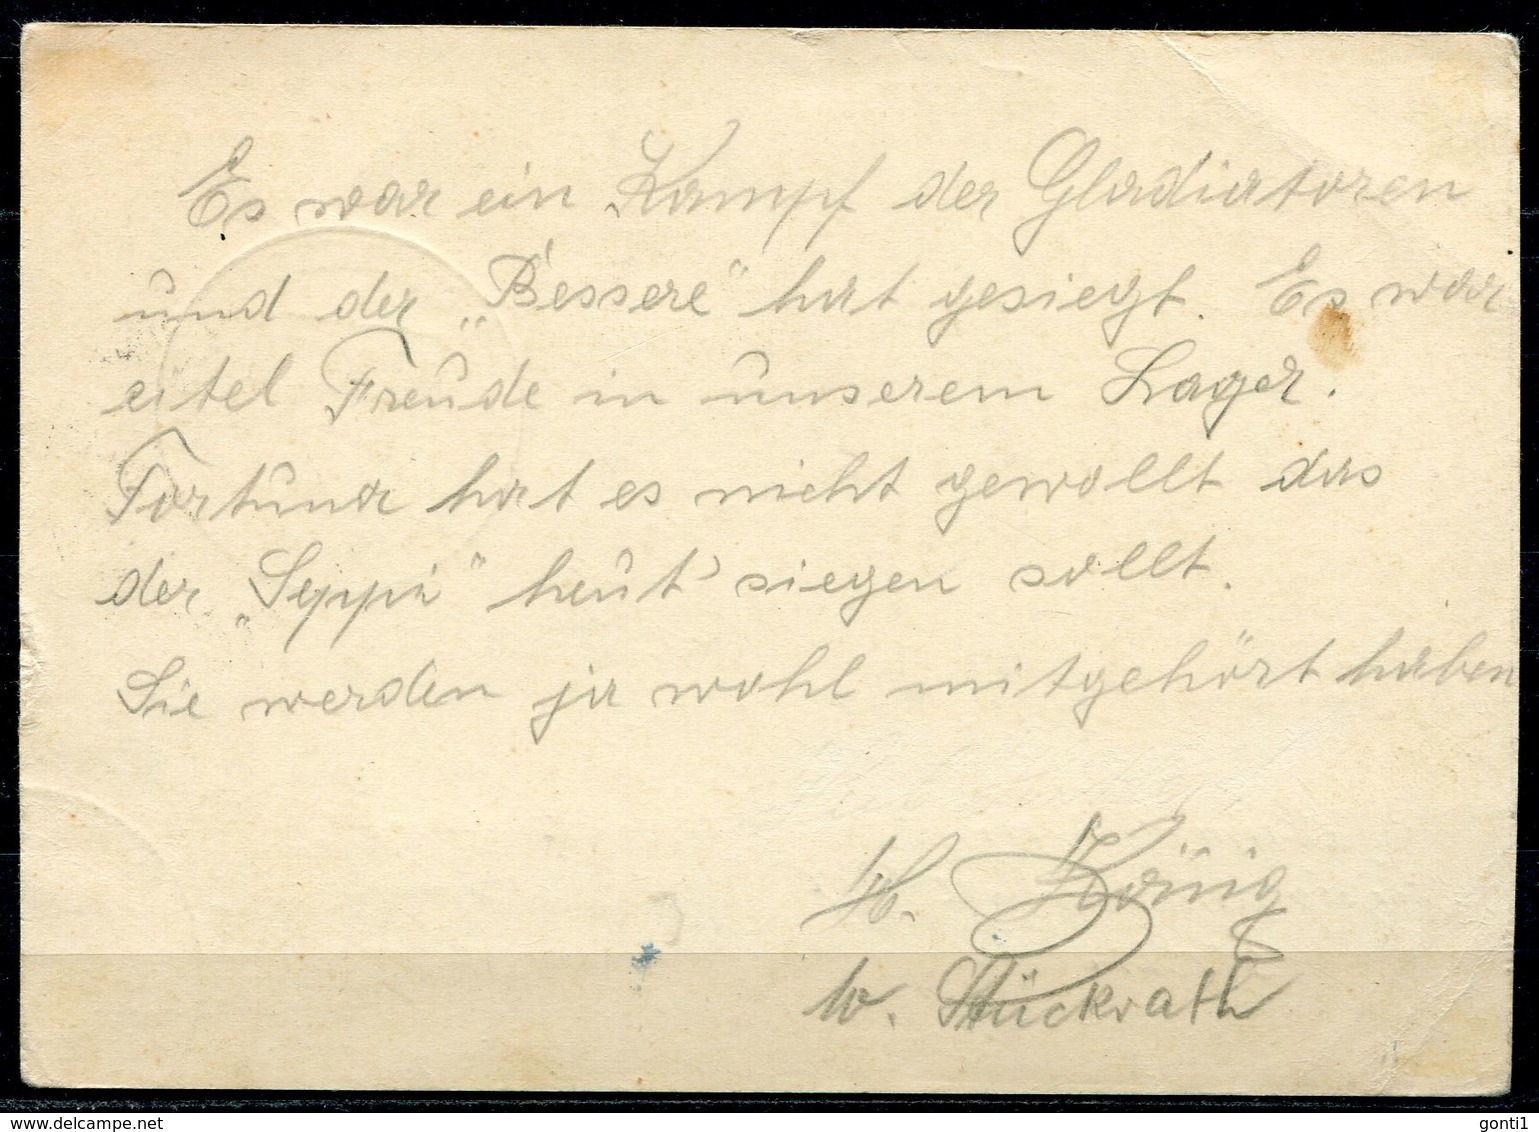 Es war ein Kampf der Gladiatoren
und der „Bessere“ hat gesiegt. Es war
eitel Freude in unserem Lager.
Fortuna hat es nicht gewollt das
der „Seppi“ heut' siegen sollt.
Sie werden ja wohl mitgehört haben
H. König
W. Stückrath
delcampe.net
gonti1